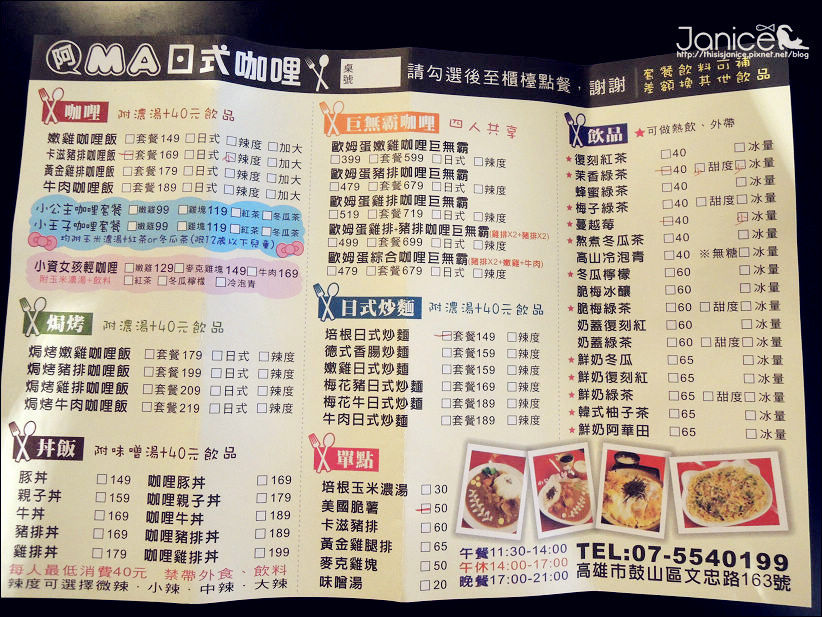 Janice
http://thisisjanice.pixnet.net/blog
阿MA日式咖哩
桌號
請勾選後至櫃檯點餐，謝謝
套餐飲料可補差額換其他飲品
咖哩 附濃湯+40元飲品
嫩雞咖哩飯 □套餐149 □日式 □辣度 □加大
卡滋豬排咖哩飯 □套餐169 □日式 □辣度 □加大
黃金雞排咖哩飯 □套餐179 □日式 □辣度 □加大
牛肉咖哩飯 □套餐189 □日式 □辣度 □加大
小公主咖哩套餐 □嫩雞99 □雞塊119 □紅茶 □冬瓜茶
小王子咖哩套餐 □嫩雞99 □雞塊119 □紅茶 □冬瓜茶
均附玉米濃湯+紅茶or冬瓜茶(限12歲以下兒童)
小資女孩輕咖哩 □嫩雞129 □麥克雞塊149 □牛肉169
附玉米濃湯+飲料 □紅茶 □冬瓜檸檬 □冷泡青
焗烤 附濃湯+40元飲品
焗烤嫩雞咖哩飯 □套餐179 □日式 □辣度
焗烤豬排咖哩飯 □套餐199 □日式 □辣度
焗烤雞排咖哩飯 □套餐209 □日式 □辣度
焗烤牛肉咖哩飯 □套餐219 □日式 □辣度
丼飯 附味噌湯+40元飲品
豚丼 □149 咖哩豚丼 □169
親子丼 □159 咖哩親子丼 □179
牛丼 □169 咖哩牛丼 □189
豬排丼 □169 咖哩豬排丼 □189
雞排丼 □179 咖哩雞排丼 □199
每人最低消費40元 禁帶外食、飲料
辣度可選擇微辣．小辣．中辣．大辣
巨無霸咖哩 四人共享
歐姆蛋嫩雞咖哩巨無霸
□399 □套餐599 □日式 □辣度
歐姆蛋豬排咖哩巨無霸
□479 □套餐679 □日式 □辣度
歐姆蛋嫩雞咖哩巨無霸
□519 □套餐719 □日式 □辣度
歐姆蛋雞排-豬排咖哩巨無霸(雞排X2+豬排X2)
□499 □套餐699 □日式 □辣度
歐姆蛋綜合咖哩巨無霸(豬排X2+嫩雞+牛肉)
□479 □套餐679 □日式 □辣度
日式炒麵 附濃湯+40元飲品
培根日式炒麵 □套餐149 □辣度
德式香腸炒麵 □套餐159 □辣度
嫩雞日式炒麵 □套餐159 □辣度
梅花豬日式炒麵 □套餐169 □辣度
梅花牛日式炒麵 □套餐189 □辣度
牛肉日式炒麵 □套餐189 □辣度
單點
培根玉米濃湯 □30
美國脆薯 □50
卡滋豬排 □60
黃金雞腿排 □65
麥克雞塊 □50
味噌湯 □20
飲品 ★可做熱飲、外帶
★復刻紅茶 □40 □冰量
★茉香綠茶 □40 □甜度 □冰量
蜂蜜綠茶 □40 □冰量
★梅子綠茶 □40 □甜度 □冰量
★蔓越莓 □40 □冰量
★熬煮冬瓜茶 □40 □冰量
高山冷泡青 □40 ※無糖 □冰量
★冬瓜檸檬 □60 □冰量
脆梅冰釀 □60 □冰量
★脆梅綠茶 □60 □甜度 □冰量
奶蓋復刻紅 □60 □冰量
奶蓋綠茶 □60 □甜度 □冰量
★鮮奶冬瓜 □65 □冰量
★鮮奶復刻紅 □65 □冰量
★鮮奶綠茶 □65 □甜度 □冰量
★韓式柚子茶 □65 □冰量
★鮮奶阿華田 □65 □冰量
午餐11:30-14:00
午休14:00-17:00
晚餐17:00-21:00
TEL:07-5540199
高雄市鼓山區文忠路163號